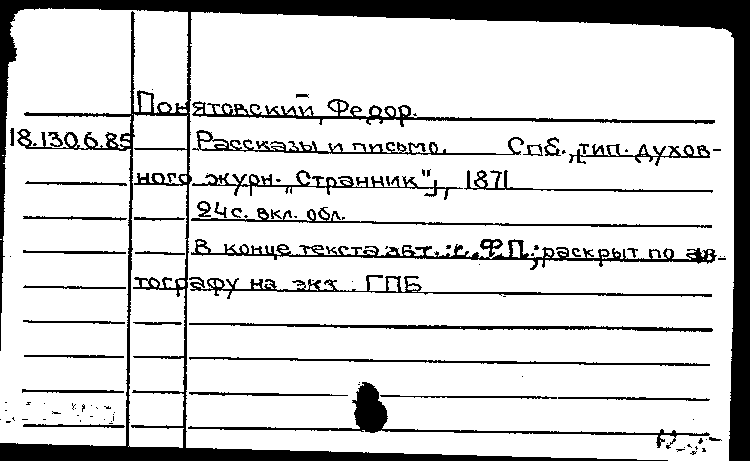 Понятовский, Федор.
18.130.6.85 Рассказы и письмо. Спб., [тип. духов-
ного журн. "Странник"], 1871.
24 с. вкл. обл.
В конце текста авт.: Ф.П.; раскрыт по ав-
тографу на экз. ГПБ